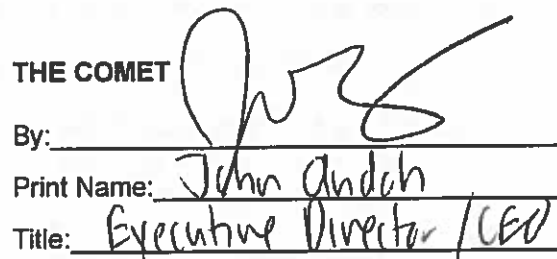 THE COMET
By:
Print Name: John Andoh
Title: Executive Director / CEO